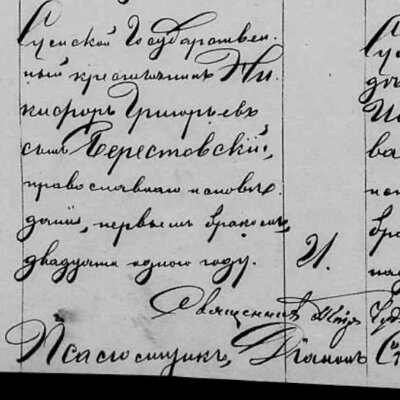 Сумской Государствен-
ный крестьянинъ Ни-
кифоръ Григорьевъ
сынъ Берестовскій,
православнаго исповѣ-
данія, первымъ бракомъ,
двадцати одного году. 21.
Священникъ
Псаломщикъ, Діаконъ